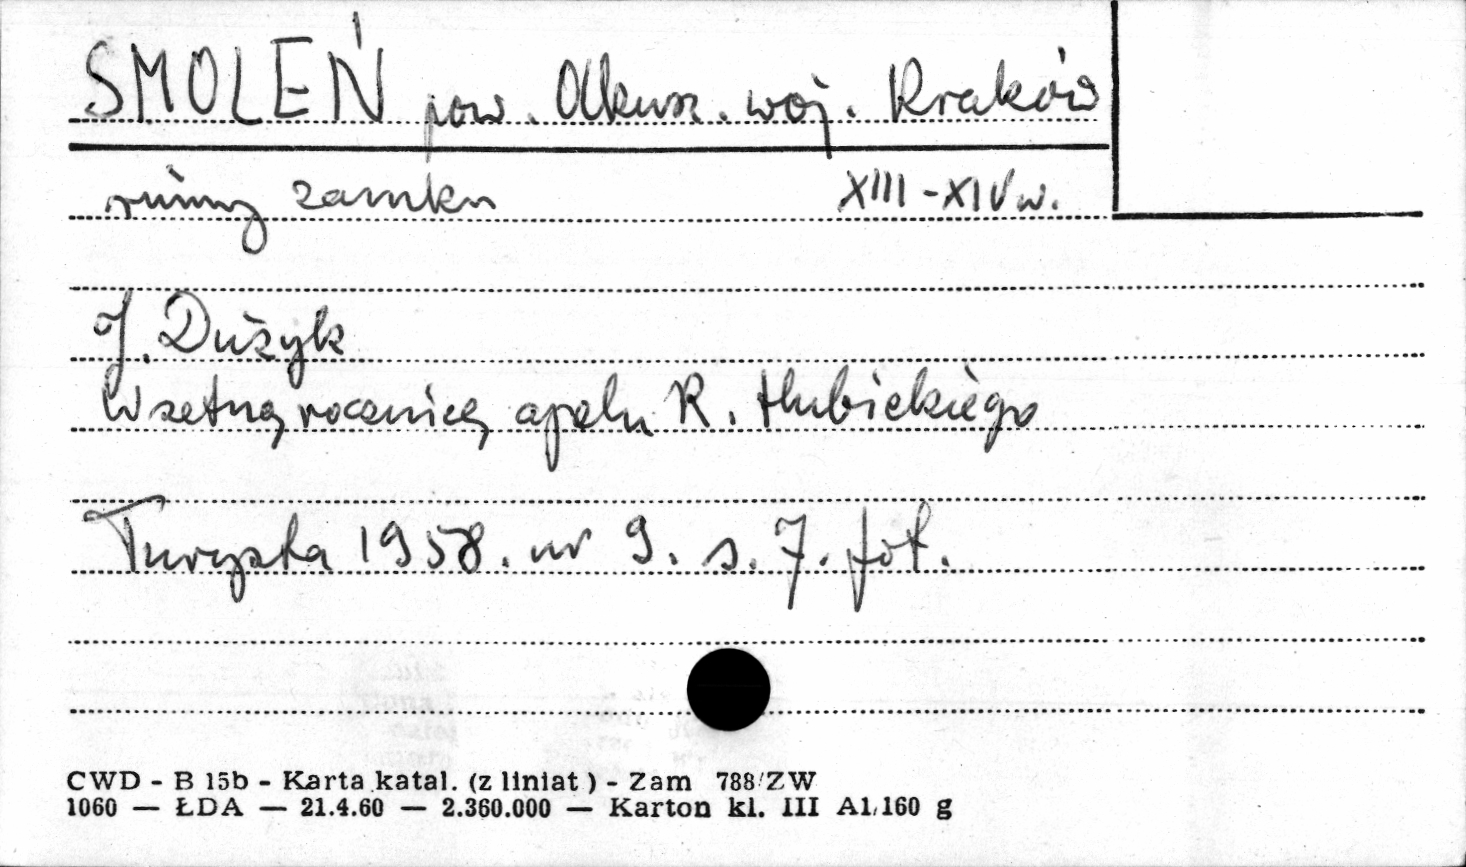 SMOLEŃ pow. Olkusz. woj. Kraków
ruiny zamku XIII-XIV w.
J. Dużyk
W setną rocznicę apelu R. Hubickiego
Turysta 1958. nr 9. s. 7. fot.
CWD - B 15b - Karta katal. (z liniat ) - Zam 788/ZW
1060 — ŁDA — 21.4.60 — 2.360.000 — Karton kl. III A1/160 g